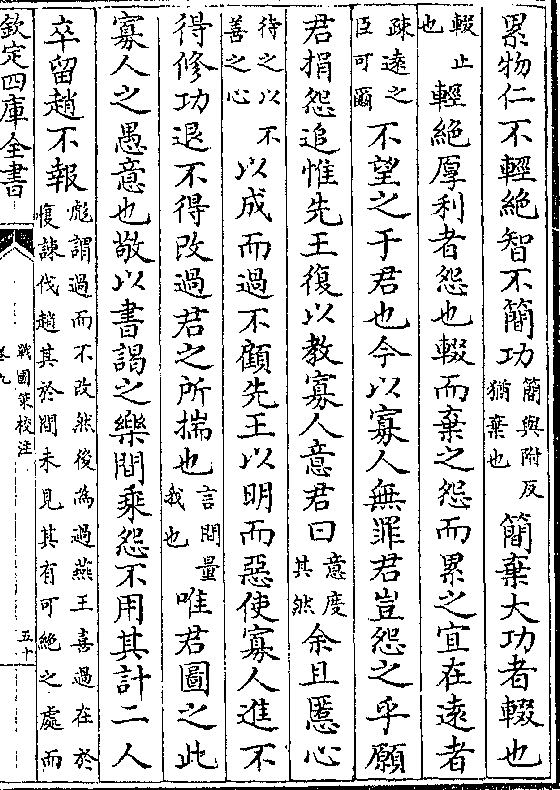 累物仁不輕絶智不簡功簡與附反猶棄也簡棄大功者輟也
輟止也輕絶厚利者怨也輟而棄之怨而累之宜在遠者
疎遠之臣可爾不望之于君也今以寡人無罪君豈怨之乎願
君捐怨追惟先王復以教寡人意君曰意度其然余且慝心
待之以不善之心以成而過不顧先王以明而惡使寡人進不
得修功退不得改過君之所揣也言間量我也唯君圖之此
寡人之愚意也敬以書謁之樂間乘怨不用其計二人
卒留趙不報彪謂過而不改然後為過燕王喜過在於愎諫伐趙其於間未見其有可絶之處而
欽定四庫全書
戰國策校注
卷九
五十